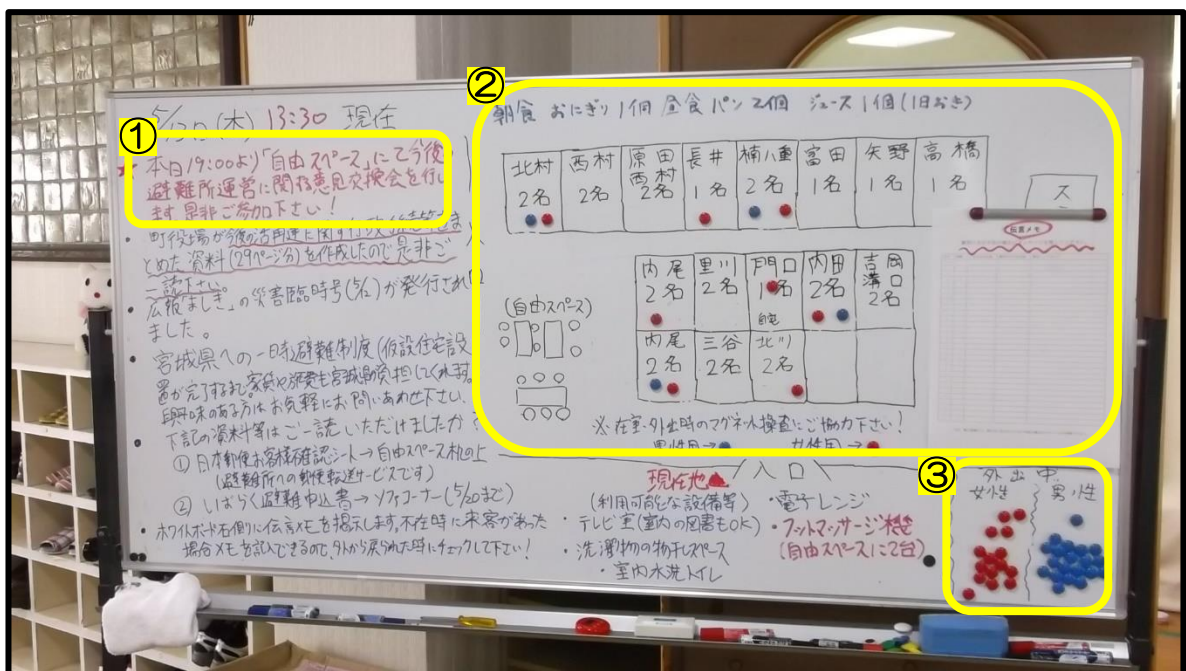 ①
5/12日(木) 13:30 現在
本日19:00より「自由スペース」にて今後
避難所運営に関する意見交換会を行い
ます 是非ご参加下さい！
・町役場が今後の活用
とめた資料(29ページ分)を作成したので是非ご
一読下さい。
・広報「ましき」の災害臨時号(5/2)が発行され
ました。
・宮城県への一時避難制度(仮設住宅設
置が完了するまで、家賃や 費も宮城県が負担してくれます。
興味のある方はお気軽にお問いあわせ下さい。
・下記の資料等はご一読いただけましたか？
① 日本郵便お客様確認シート→自由スペース机の上
(避難所への郵便転送サービスです)
② いばらく避難申込書→ソファコーナー(5/20まで)
・ホワイトボード右側に伝言メモを掲示します。不在時に来客があった
場合メモを記入できるので、外から戻られた時にチェックして下さい！
②
朝食 おにぎり1個 昼食 パン2個 ジュース1個(1日おき)
北村 2名
西村 2名
原田 西村 2名
長井 1名
楠八重 2名
富田 1名
矢野 1名
高橋 1名
ス
伝言メモ
(自由スペース)
内尾 2名
里川 2名
門口 1名 自宅
内田 2名
吉岡 溝口 2名
内尾 2名
三谷 2名
北川 2名
※在室・外出時のマグネット検査にご協力下さい！
男性用→ 女性用→
入口
現在地
(利用可能な設備等)
・テレビ室(室内の図書もOK)
・洗濯物の物干しスペース
・室内水洗トイレ
・電子レンジ
・フットマッサージ機
(自由スペースに2台)
③
外出中
女性 男性